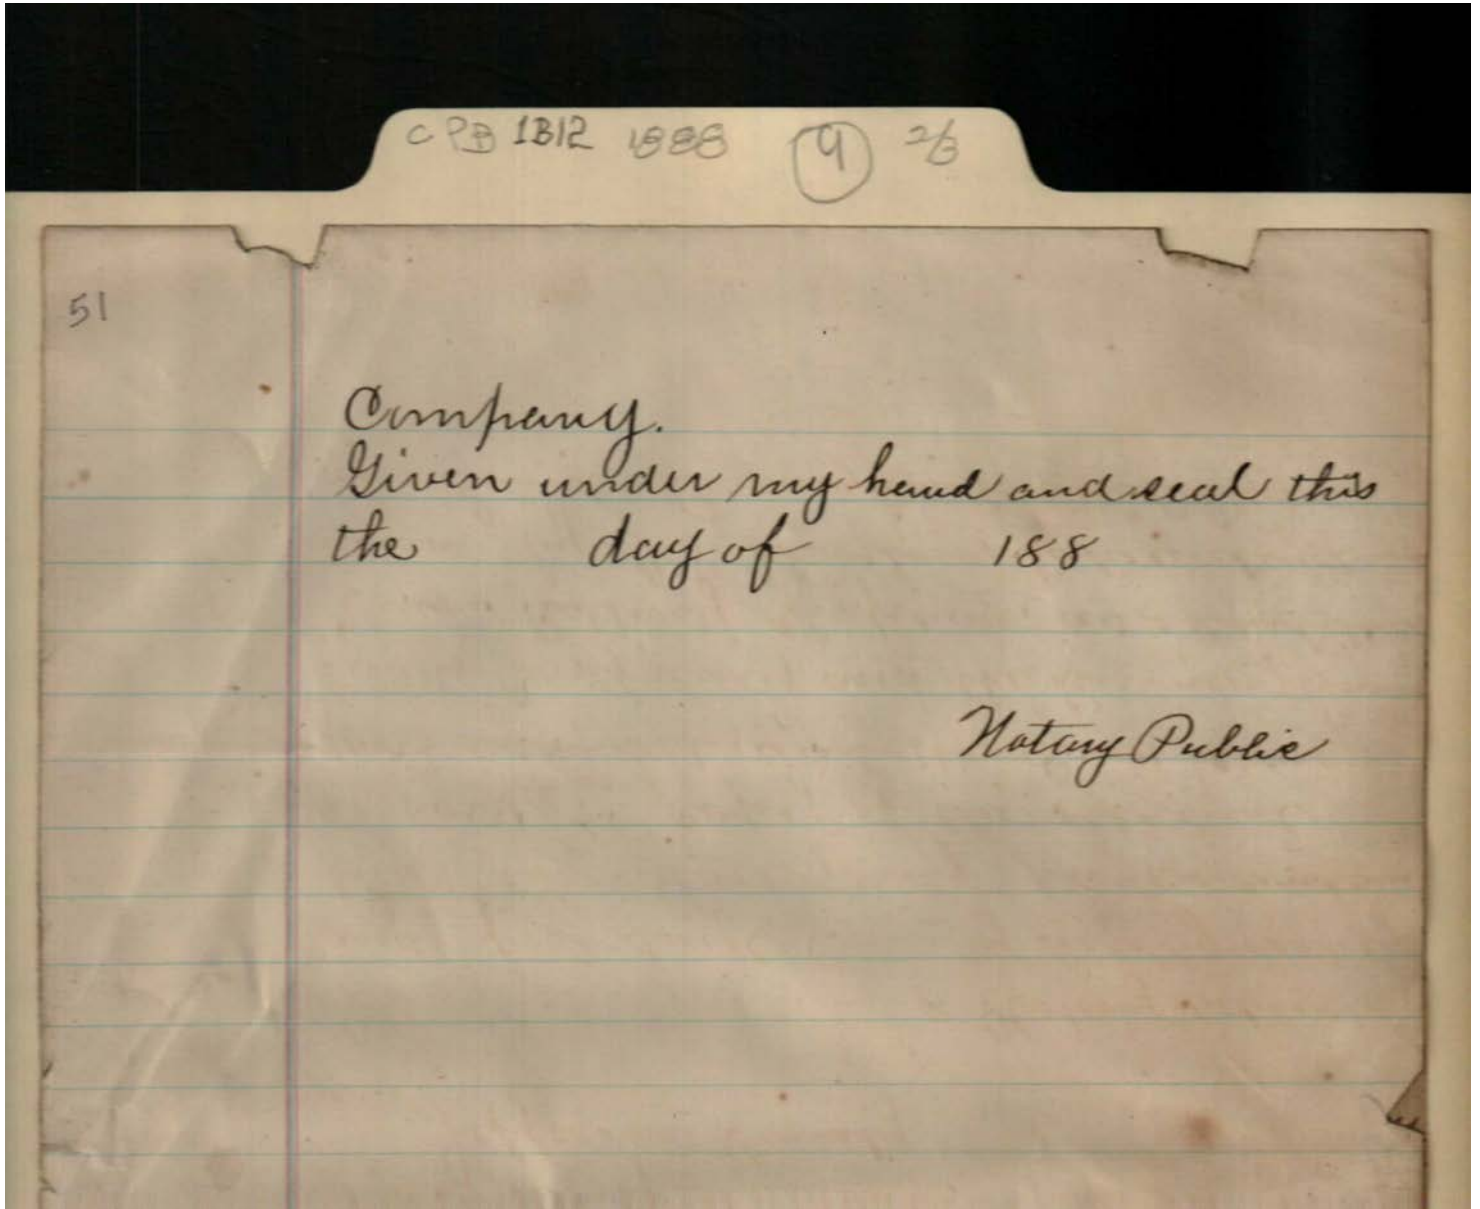 CPB 1B12 1888 9 2/3
51
Company.
Given under my hand and seal this
the day of 188
Notary Public